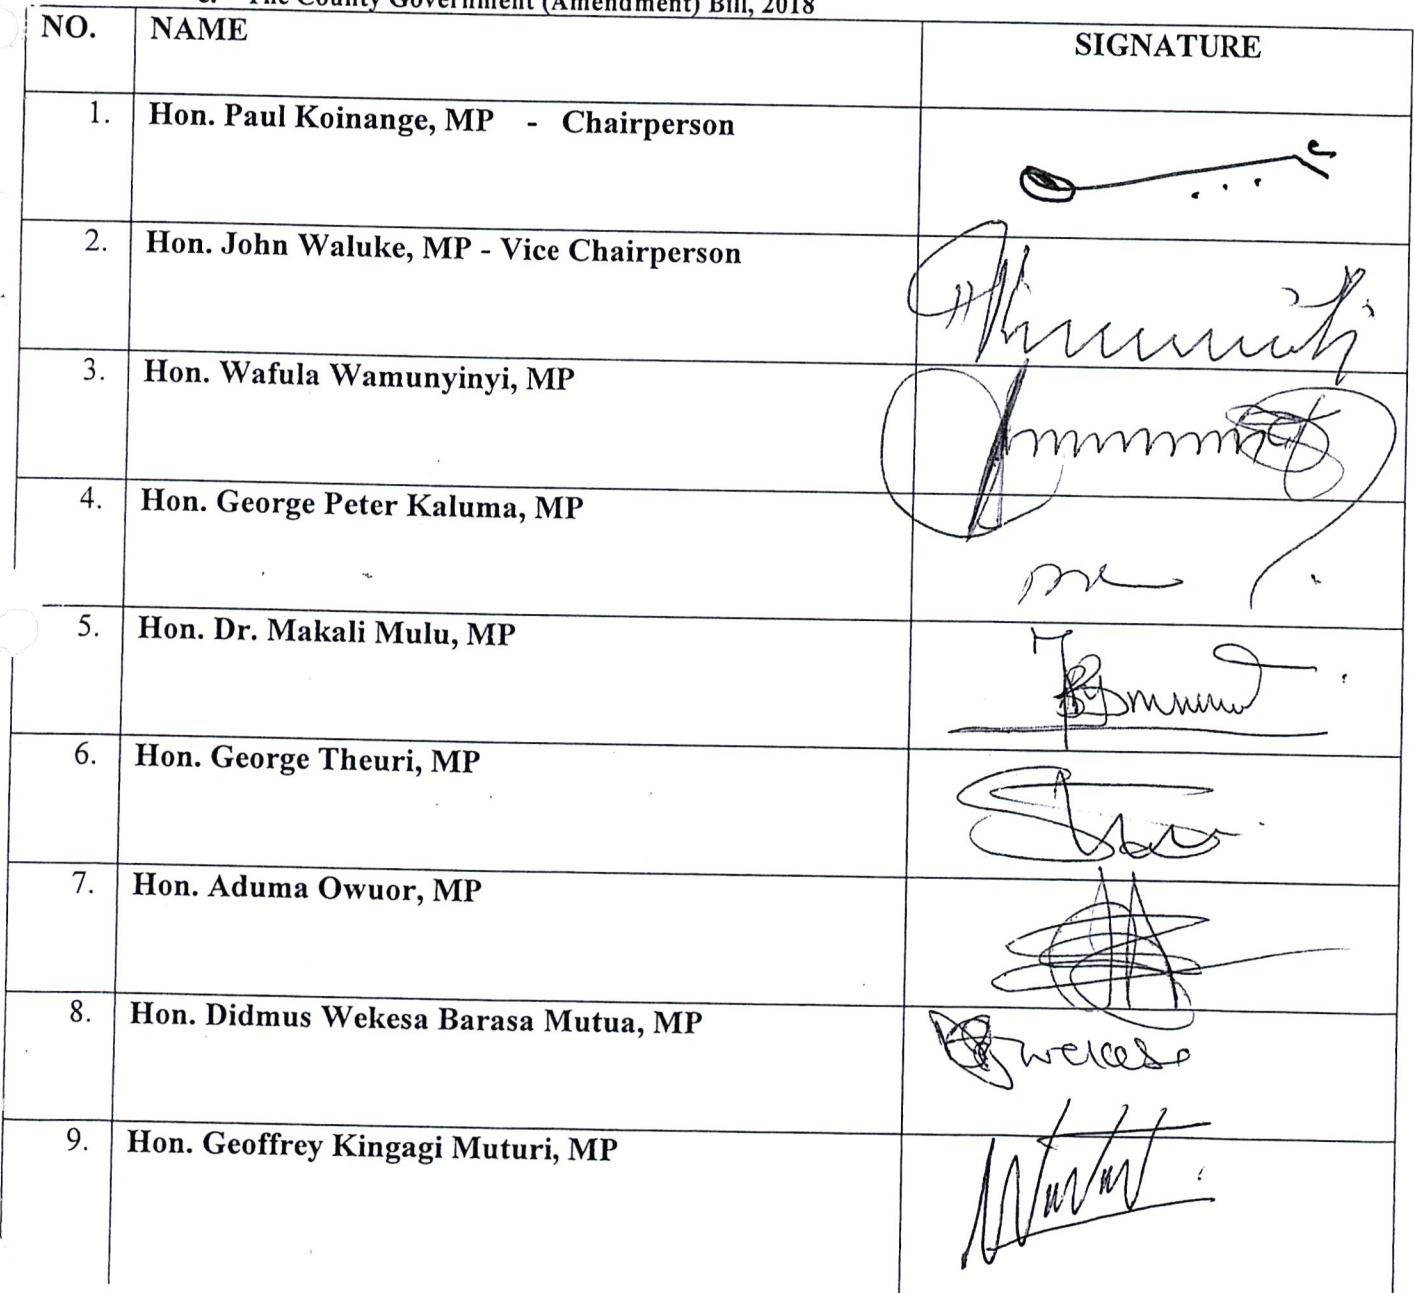 The County Government (Amendment) Bill, 2018
NO. NAME SIGNATURE
1. Hon. Paul Koinange, MP - Chairperson
2. Hon. John Waluke, MP - Vice Chairperson
3. Hon. Wafula Wamunyinyi, MP
4. Hon. George Peter Kaluma, MP
5. Hon. Dr. Makali Mulu, MP
6. Hon. George Theuri, MP
7. Hon. Aduma Owuor, MP
8. Hon. Didmus Wekesa Barasa Mutua, MP
wekesa
9. Hon. Geoffrey Kingagi Muturi, MP